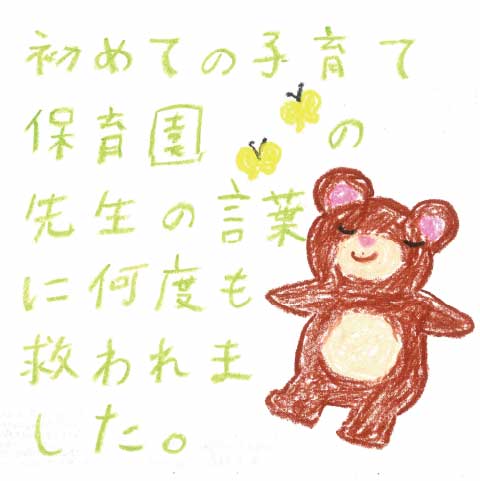 初めての子育て
保育園の
先生の言葉
に何度も
救われま
した。